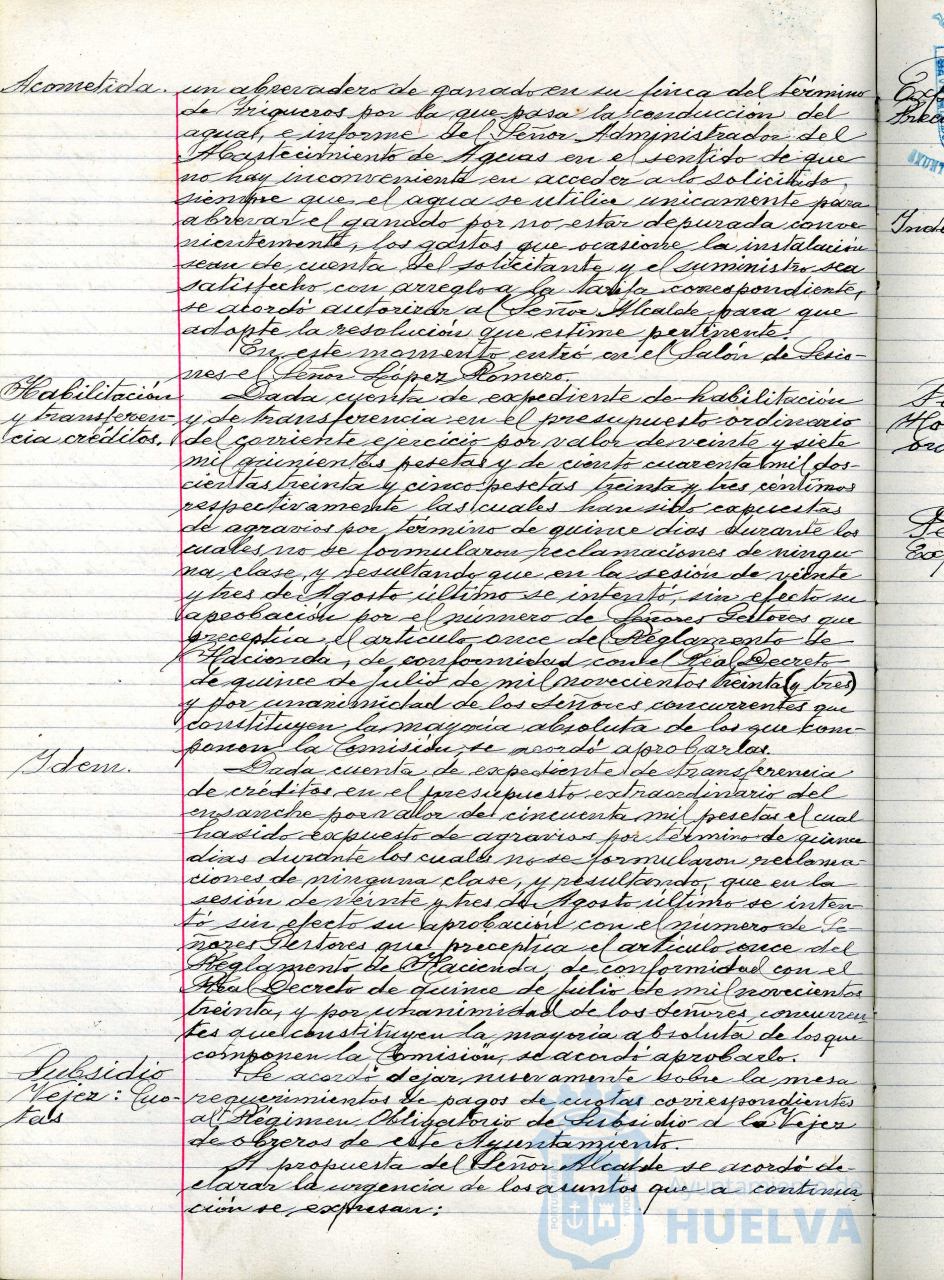 Acometida.
un abrevadero de ganado en su finca del término
de Trigueros por la que pasa la conducción del
agua, e informe del Señor Administrador del
Abastecimiento de Aguas en el sentido de que
no hay inconveniente en acceder a lo solicitado,
siempre que el agua se utilice unicamente para
abrevar el ganado por no estar depurada conve-
nientemente, los gastos que ocasione la instalación
sean de cuenta del solicitante y el suministro sea
satisfecho con arreglo a la tarifa correspondiente,
se acordó autorizar al Señor Alcalde para que
adopte la resolución que estime pertinente.
En este momento entró en el Salón de Sesio-
nes el Señor López Romero.
Habilitación
y transferen-
cia créditos.
Dada cuenta de expediente de habilitación
y de transferencia en el presupuesto ordinario
del corriente ejercicio por valor de veinte y siete
mil quinientas pesetas y de ciento cuarenta mil dos-
cientas treinta y cinco pesetas treinta y tres céntimos
respectivamente las cuales han sido expuestas
de agravios por término de quince dias durante los
cuales no se formularon reclamaciones de ningu-
na clase, y resultando que en la sesión de veinte
y tres de Agosto último se intentó sin efecto su
aprobación por el número de Señores Gestores que
preceptúa el articulo once de Reglamento de
Hacienda, de conformidad con el Real Decreto
de quince de Julio de mil novecientos treinta (y tres)
y por unanimidad de los Señores concurrentes que
constituyen la mayoria absoluta de los que com-
ponen la Comisión, se acordó aprobarlas.
Idem.
Dada cuenta de expediente de transferencia
de créditos en el presupuesto extraordinario del
ensanche por valor de cincuenta mil pesetas el cual
ha sido expuesto de agravios por término de quince
dias durante los cuales no se formularon reclama-
ciones de ninguna clase, y resultando, que en la
sesión de veinte y tres de Agosto último se inten-
tó sin efecto su aprobación con el número de Se-
ñores Gestores que preceptúa el articulo once del
Reglamento de Hacienda, de conformidad con el
Real Decreto de quince de Julio de mil novecientos
treinta, y por unanimidad de los Señores concurren-
tes que constituyen la mayoria absoluta de los que
componen la Comisión, se acordó aprobarlo.
Subsidio
Vejez: Cuo-
tas
Se acordó dejar nuevamente sobre la mesa
requerimientos de pagos de cuotas correspondientes
al Régimen Obligatorio de Subsidio a la Vejez
de obreros de este Ayuntamiento.
A propuesta del Señor Alcalde se acordó de-
clarar la urgencia de los asuntos que a continua
ción se expresan:
Ayuntamiento de
HUELVA